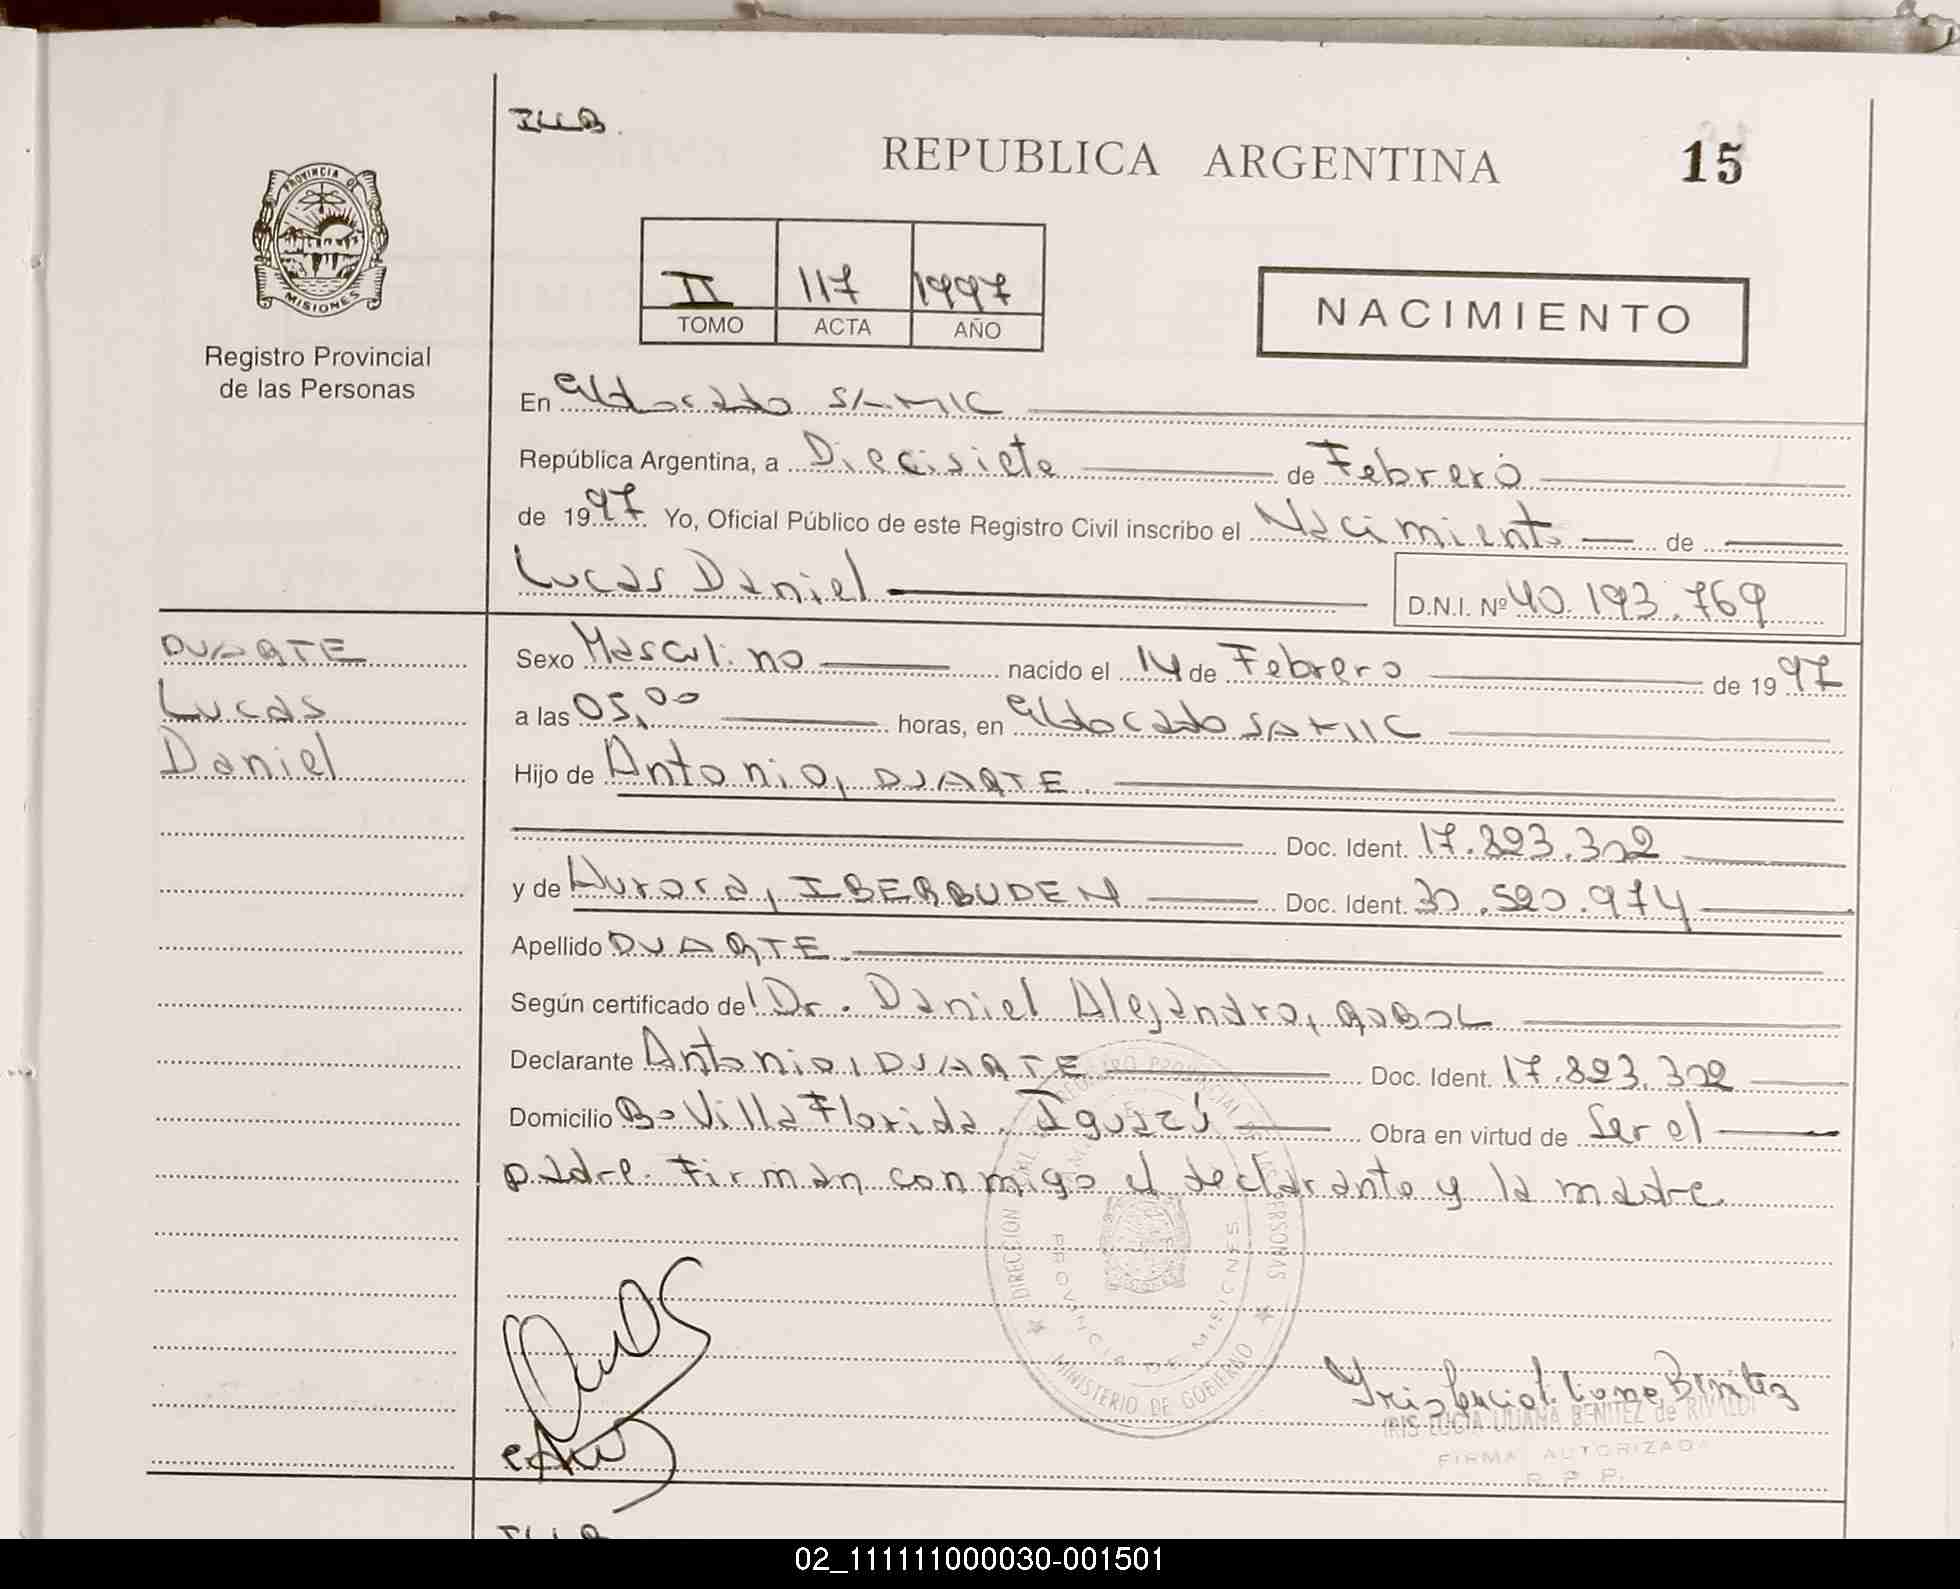 ILLB.
REPUBLICA ARGENTINA
15
PROVINCIA DE
MISIONES
Registro Provincial
de las Personas
II 117 1997
TOMO ACTA AÑO
NACIMIENTO
En Eldorado SAMIC
República Argentina, a Diecisiete de Febrero
de 1997 Yo, Oficial Público de este Registro Civil inscribo el Nacimiento de
Lucas Daniel
D.N.I. Nº 40.193.769
DUARTE
Lucas
Daniel
Sexo Masculino nacido el 14 de Febrero de 1997
a las 05,00 horas, en Eldorado SAMIC
Hijo de Antonio, DUARTE
Doc. Ident. 17.823.302
y de Aurora, IBERBUDEN Doc. Ident. 30.520.974
Apellido DUARTE
Según certificado del Dr. Daniel Alejandro, ROBOL
Declarante Antonio, DUARTE Doc. Ident. 17.823.302
Domicilio Bo Villa Florida. Iguazú Obra en virtud de Ser el
padre. Firman conmigo el declarante y la madre
DIRECCION REGISTRO PROVINCIAL DE LAS PERSONAS
MINISTERIO DE GOBIERNO
PROVINCIA DE MISIONES
Iris Lucia Liliana Benitez
IRIS LUCIA LILIANA BENITEZ de RIVALDI
FIRMA AUTORIZADA
R. P. P.
ILLB
02_111111000030-001501